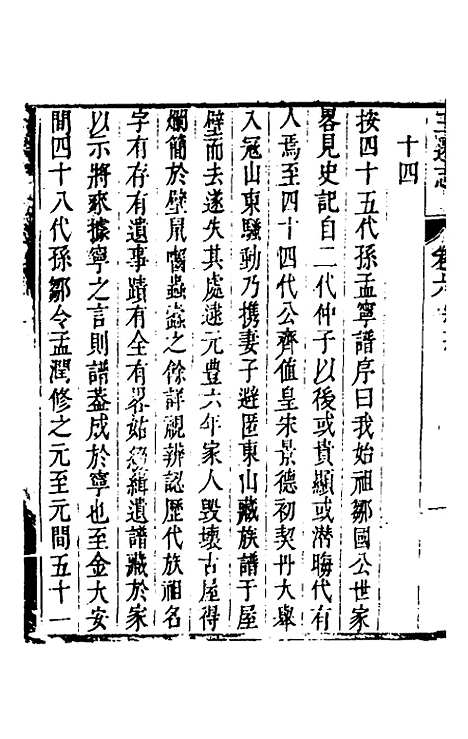 三遷志
十四
按四十五代孫孟寧譜序曰我始祖鄒國公世家
畧見史記自二代仲子以後或貴顯或潛晦代有
人焉至四十四代公齊值皇宋景德初契丹大舉
入冠山東騷動乃携妻子避匿東山藏族譜于屋
壁而去遂失其處逮元豊六年家人毁壞古屋得
爛簡於壁鼠嚙蟲蠧之餘詳視辨認歷代族祖名
字有存有遺事蹟有全有畧姑緝遺譜藏於家
以示將來據寧之言則譜葢成於寧也至金大安
間四十八代孫鄒令孟潤修之元至元間五十一